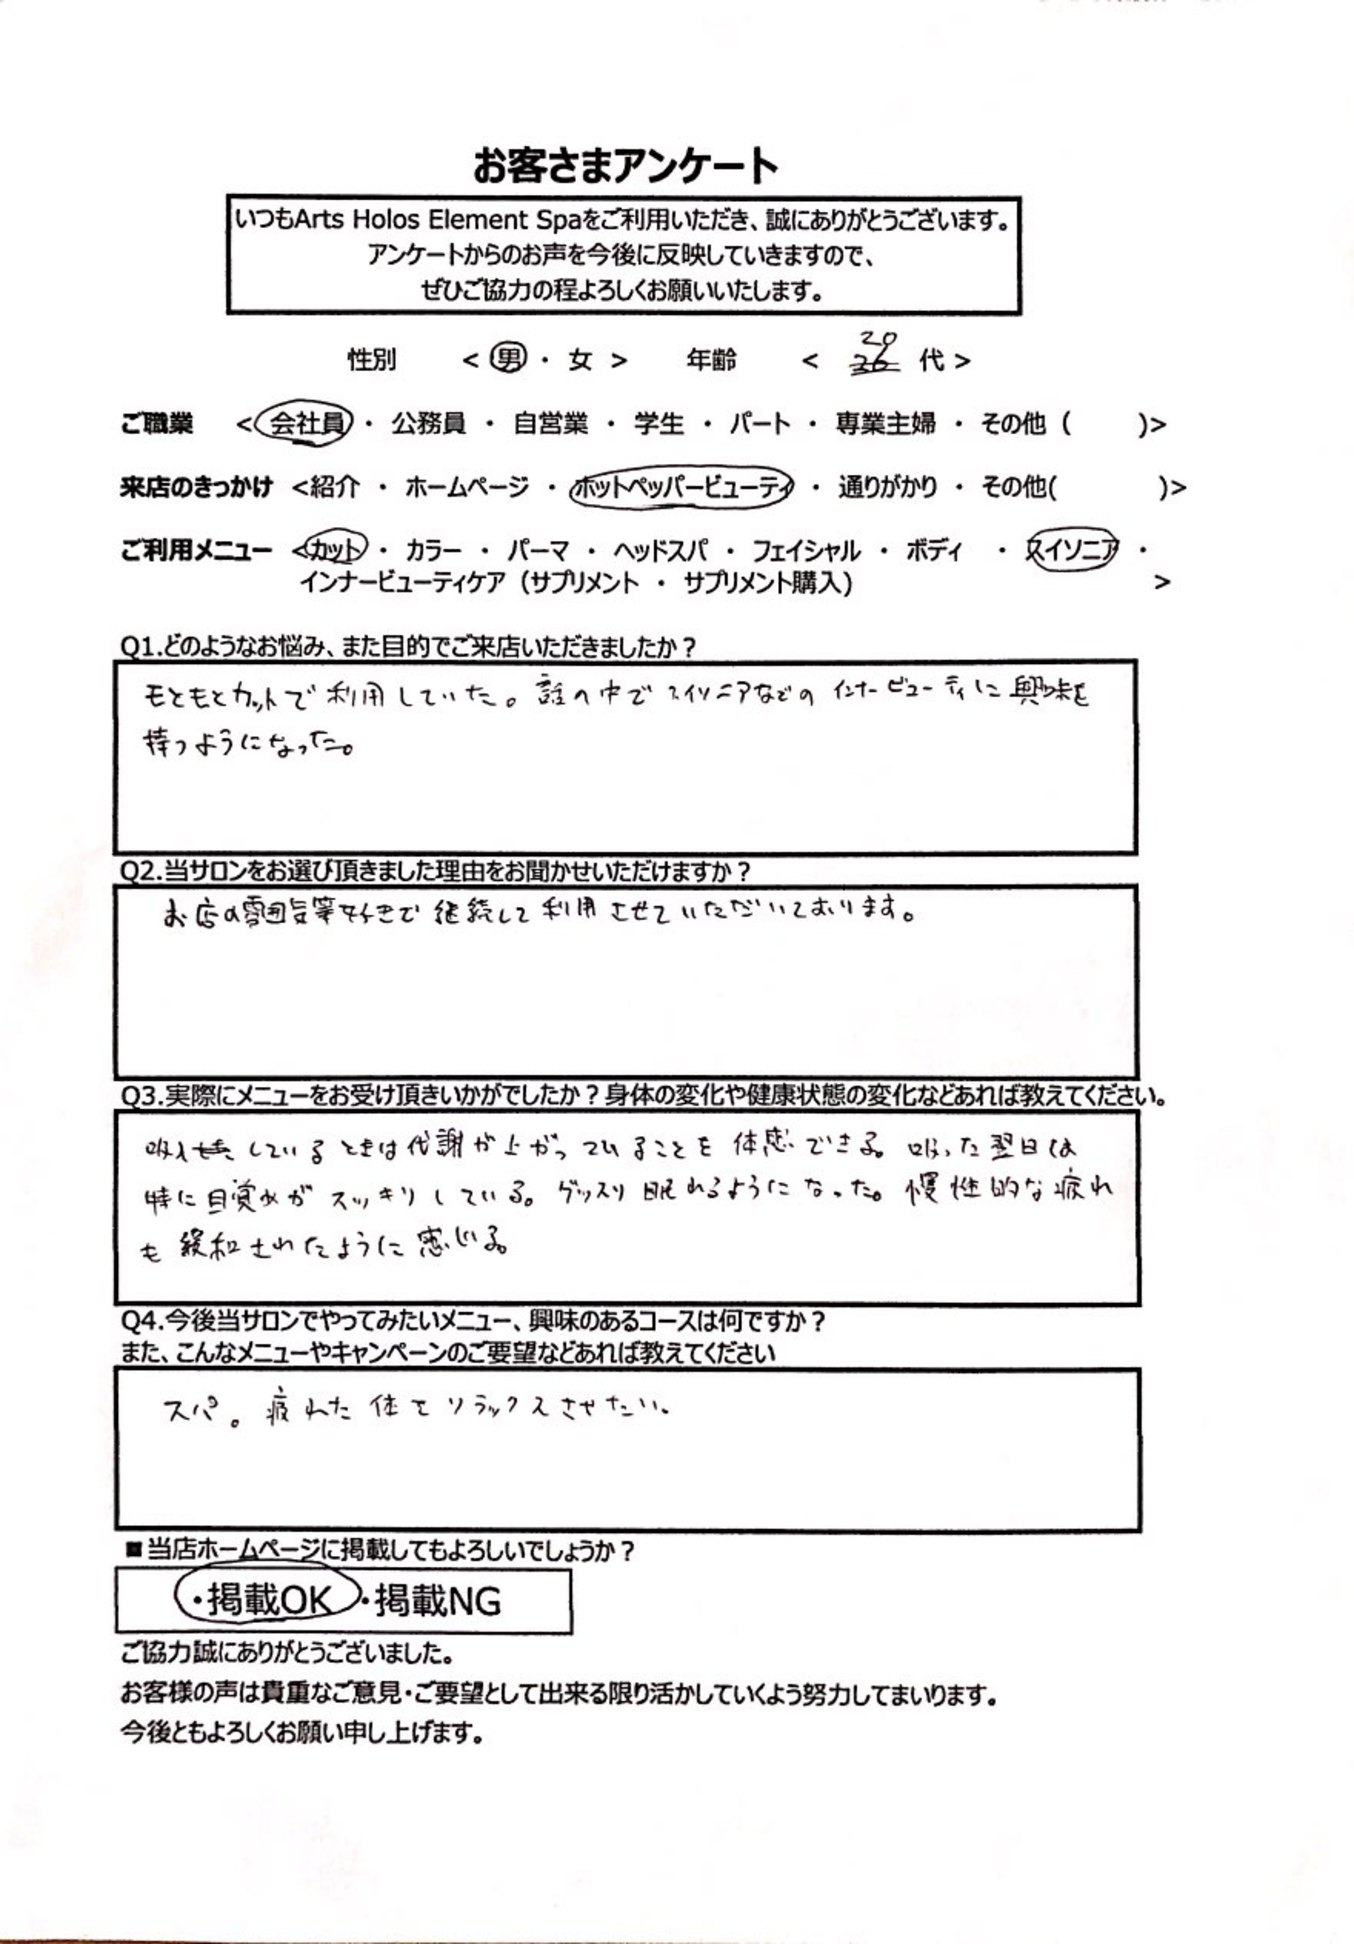 お客さまアンケート
いつもArts Holos Element Spaをご利用いただき、誠にありがとうございます。
アンケートからのお声を今後に反映していきますので、
ぜひご協力の程よろしくお願いいたします。
性別 < 男 ・ 女 > 年齢 < 20 代 >
ご職業 <会社員 ・ 公務員 ・ 自営業 ・ 学生 ・ パート ・ 専業主婦 ・ その他 ( )>
来店のきっかけ <紹介 ・ ホームページ ・ ホットペッパービューティ ・ 通りがかり ・ その他( )>
ご利用メニュー <カット ・ カラー ・ パーマ ・ ヘッドスパ ・ フェイシャル ・ ボディ ・ スイソニア ・
インナービューティケア (サプリメント ・ サプリメント購入) >
Q1.どのようなお悩み、また目的でご来店いただきましたか？
もともとカットで利用していた。話の中でスイソニアなどのインナービューティに興味を
持つようになった。
Q2.当サロンをお選び頂きました理由をお聞かせいただけますか？
お店の雰囲気等好きで継続して利用させていただいております。
Q3.実際にメニューをお受け頂きいかがでしたか？身体の変化や健康状態の変化などあれば教えてください。
吸入しているときは代謝が上がっていることを体感できる。吸った翌日は
特に目覚めがスッキリしている。グッスリ眠れるようになった。慢性的な疲れ
も緩和されたように感じる。
Q4.今後当サロンでやってみたいメニュー、興味のあるコースは何ですか？
また、こんなメニューやキャンペーンのご要望などあれば教えてください
スパ。疲れた体をリラックスさせたい。
■当店ホームページに掲載してもよろしいでしょうか？
・掲載OK ・掲載NG
ご協力誠にありがとうございました。
お客様の声は貴重なご意見・ご要望として出来る限り活かしていくよう努力してまいります。
今後ともよろしくお願い申し上げます。